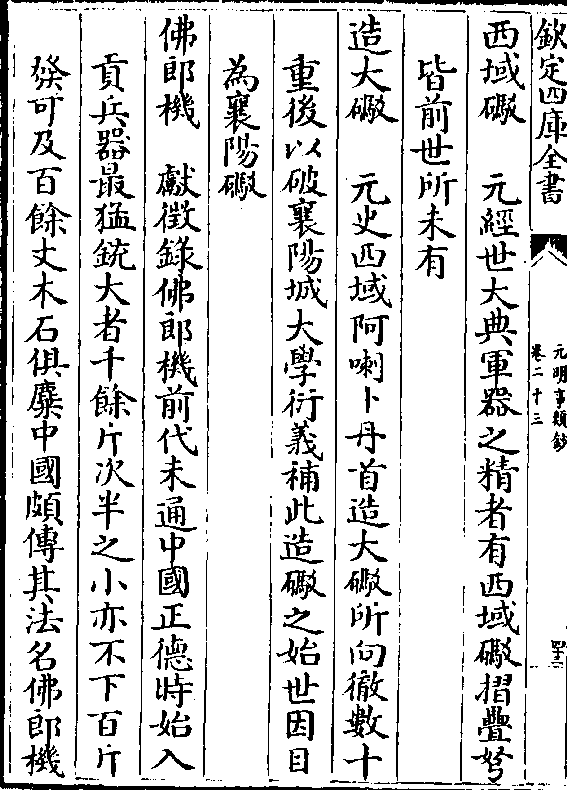 欽定四庫全書
元明事類鈔
卷二十三
西域礮　元經世大典軍器之精者有西域礮摺疊弩
皆前世所未有
造大礮　元史西域阿喇卜丹首造大礮所向徹數十
重後以破襄陽城大學衍義補此造礮之始世因目
為襄陽礮
佛郎機　獻徵錄佛郎機前代未通中國正德時始入
貢兵器最猛銃大者千餘斤次半之小亦不下百斤
發可及百餘丈木石俱糜中國頗傳其法名佛郎機